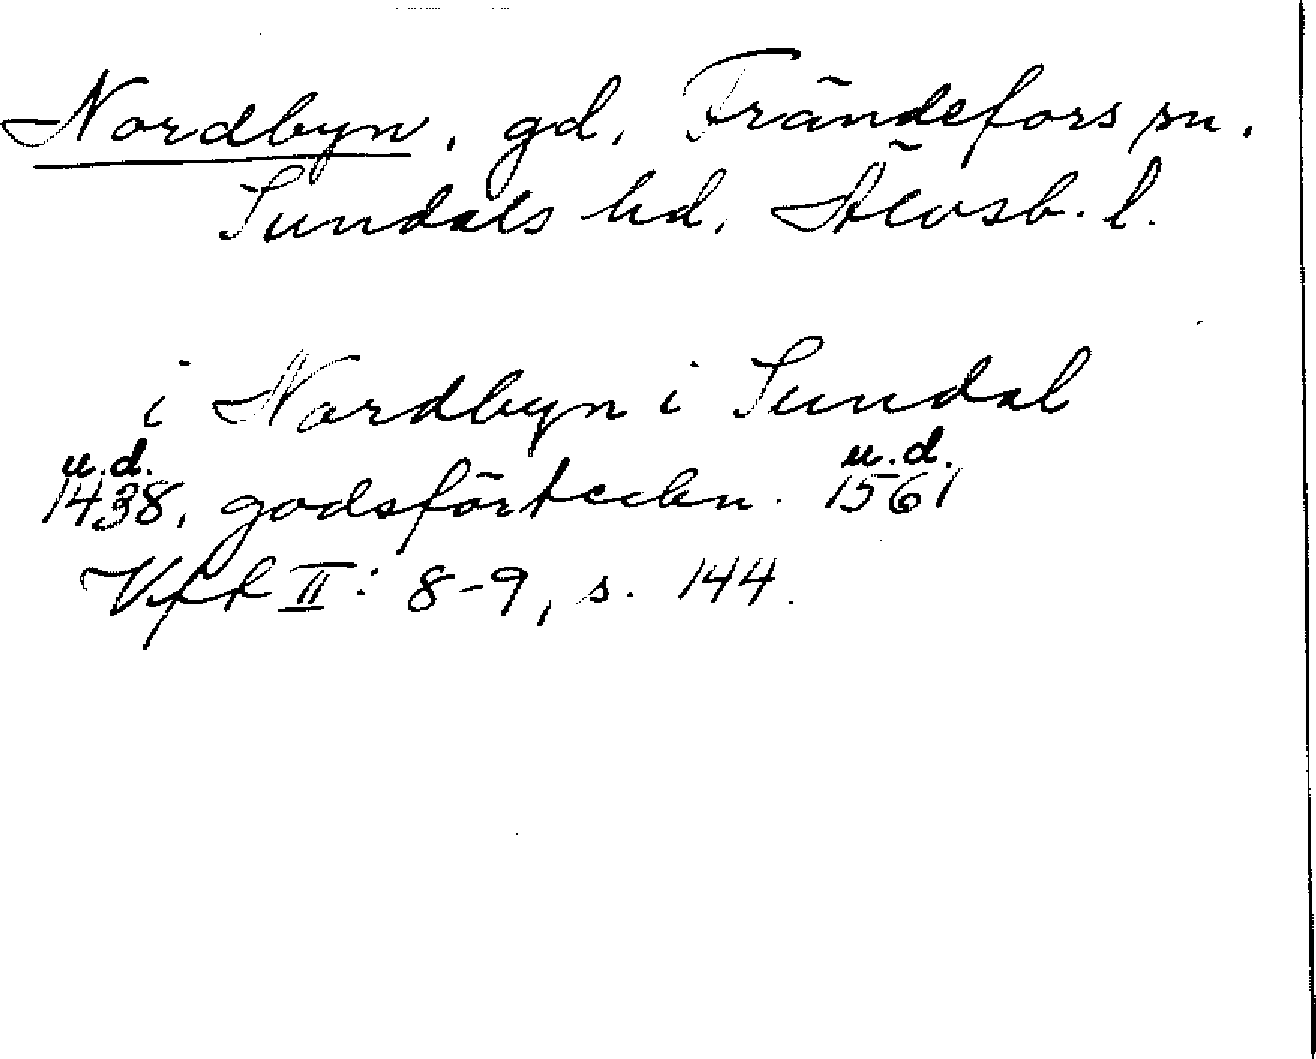 Nordbyn, gd, Frändefors sn.
Sundals hd, Älvsb. l.
i Nordbyn i Sundal
u.d. u.d.
1438, godsförteckn. 1561
Vft II: 8-9, s. 144.